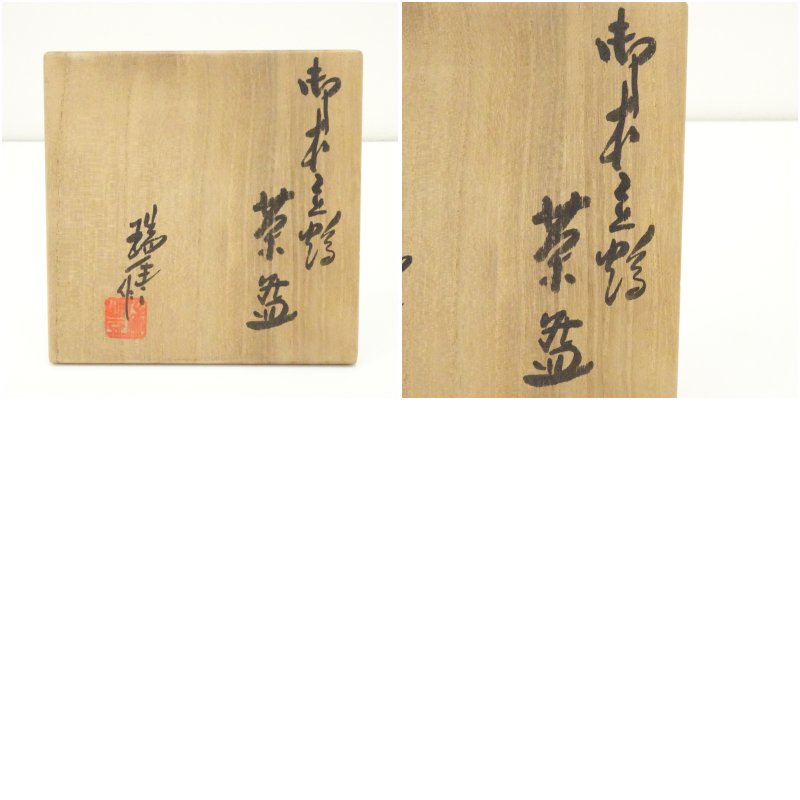 御本立鶴
茶盌
御本立鶴
茶盌